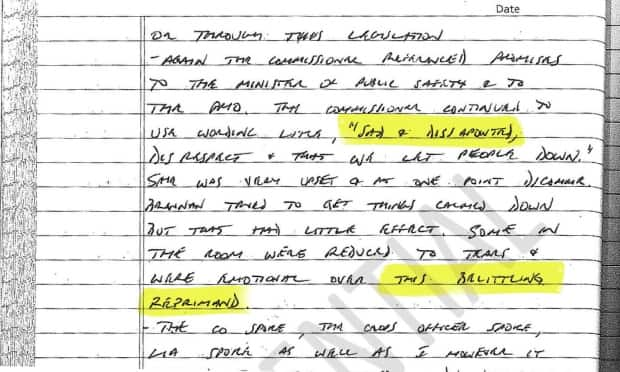 Date
OR THROUGH THIS LEGISLATION
- AGAIN THE COMMISSIONER REFERENCED PROMISES
TO THE MINISTER OF PUBLIC SAFETY & TO
THE PMO. THE COMMISSIONER CONTINUED TO
USE WORDING LIKE, "SAD & DISSAPOINTED,
DISRESPECT & THAT WE LET PEOPLE DOWN."
SHE WAS VERY UPSET & AT ONE POINT D/COMMR.
BRENNAN TRIED TO GET THINGS CALMED DOWN
BUT THAT HAD LITTLE EFFECT. SOME IN
THE ROOM WERE REDUCED TO TEARS &
WERE EMOTIONAL OVER THIS BELITTLING
REPRIMAND.
- THE CO SPOKE, THE CROPS OFFICER SPOKE,
LIA SPOKE AS WELL AS I HOWEVER IT